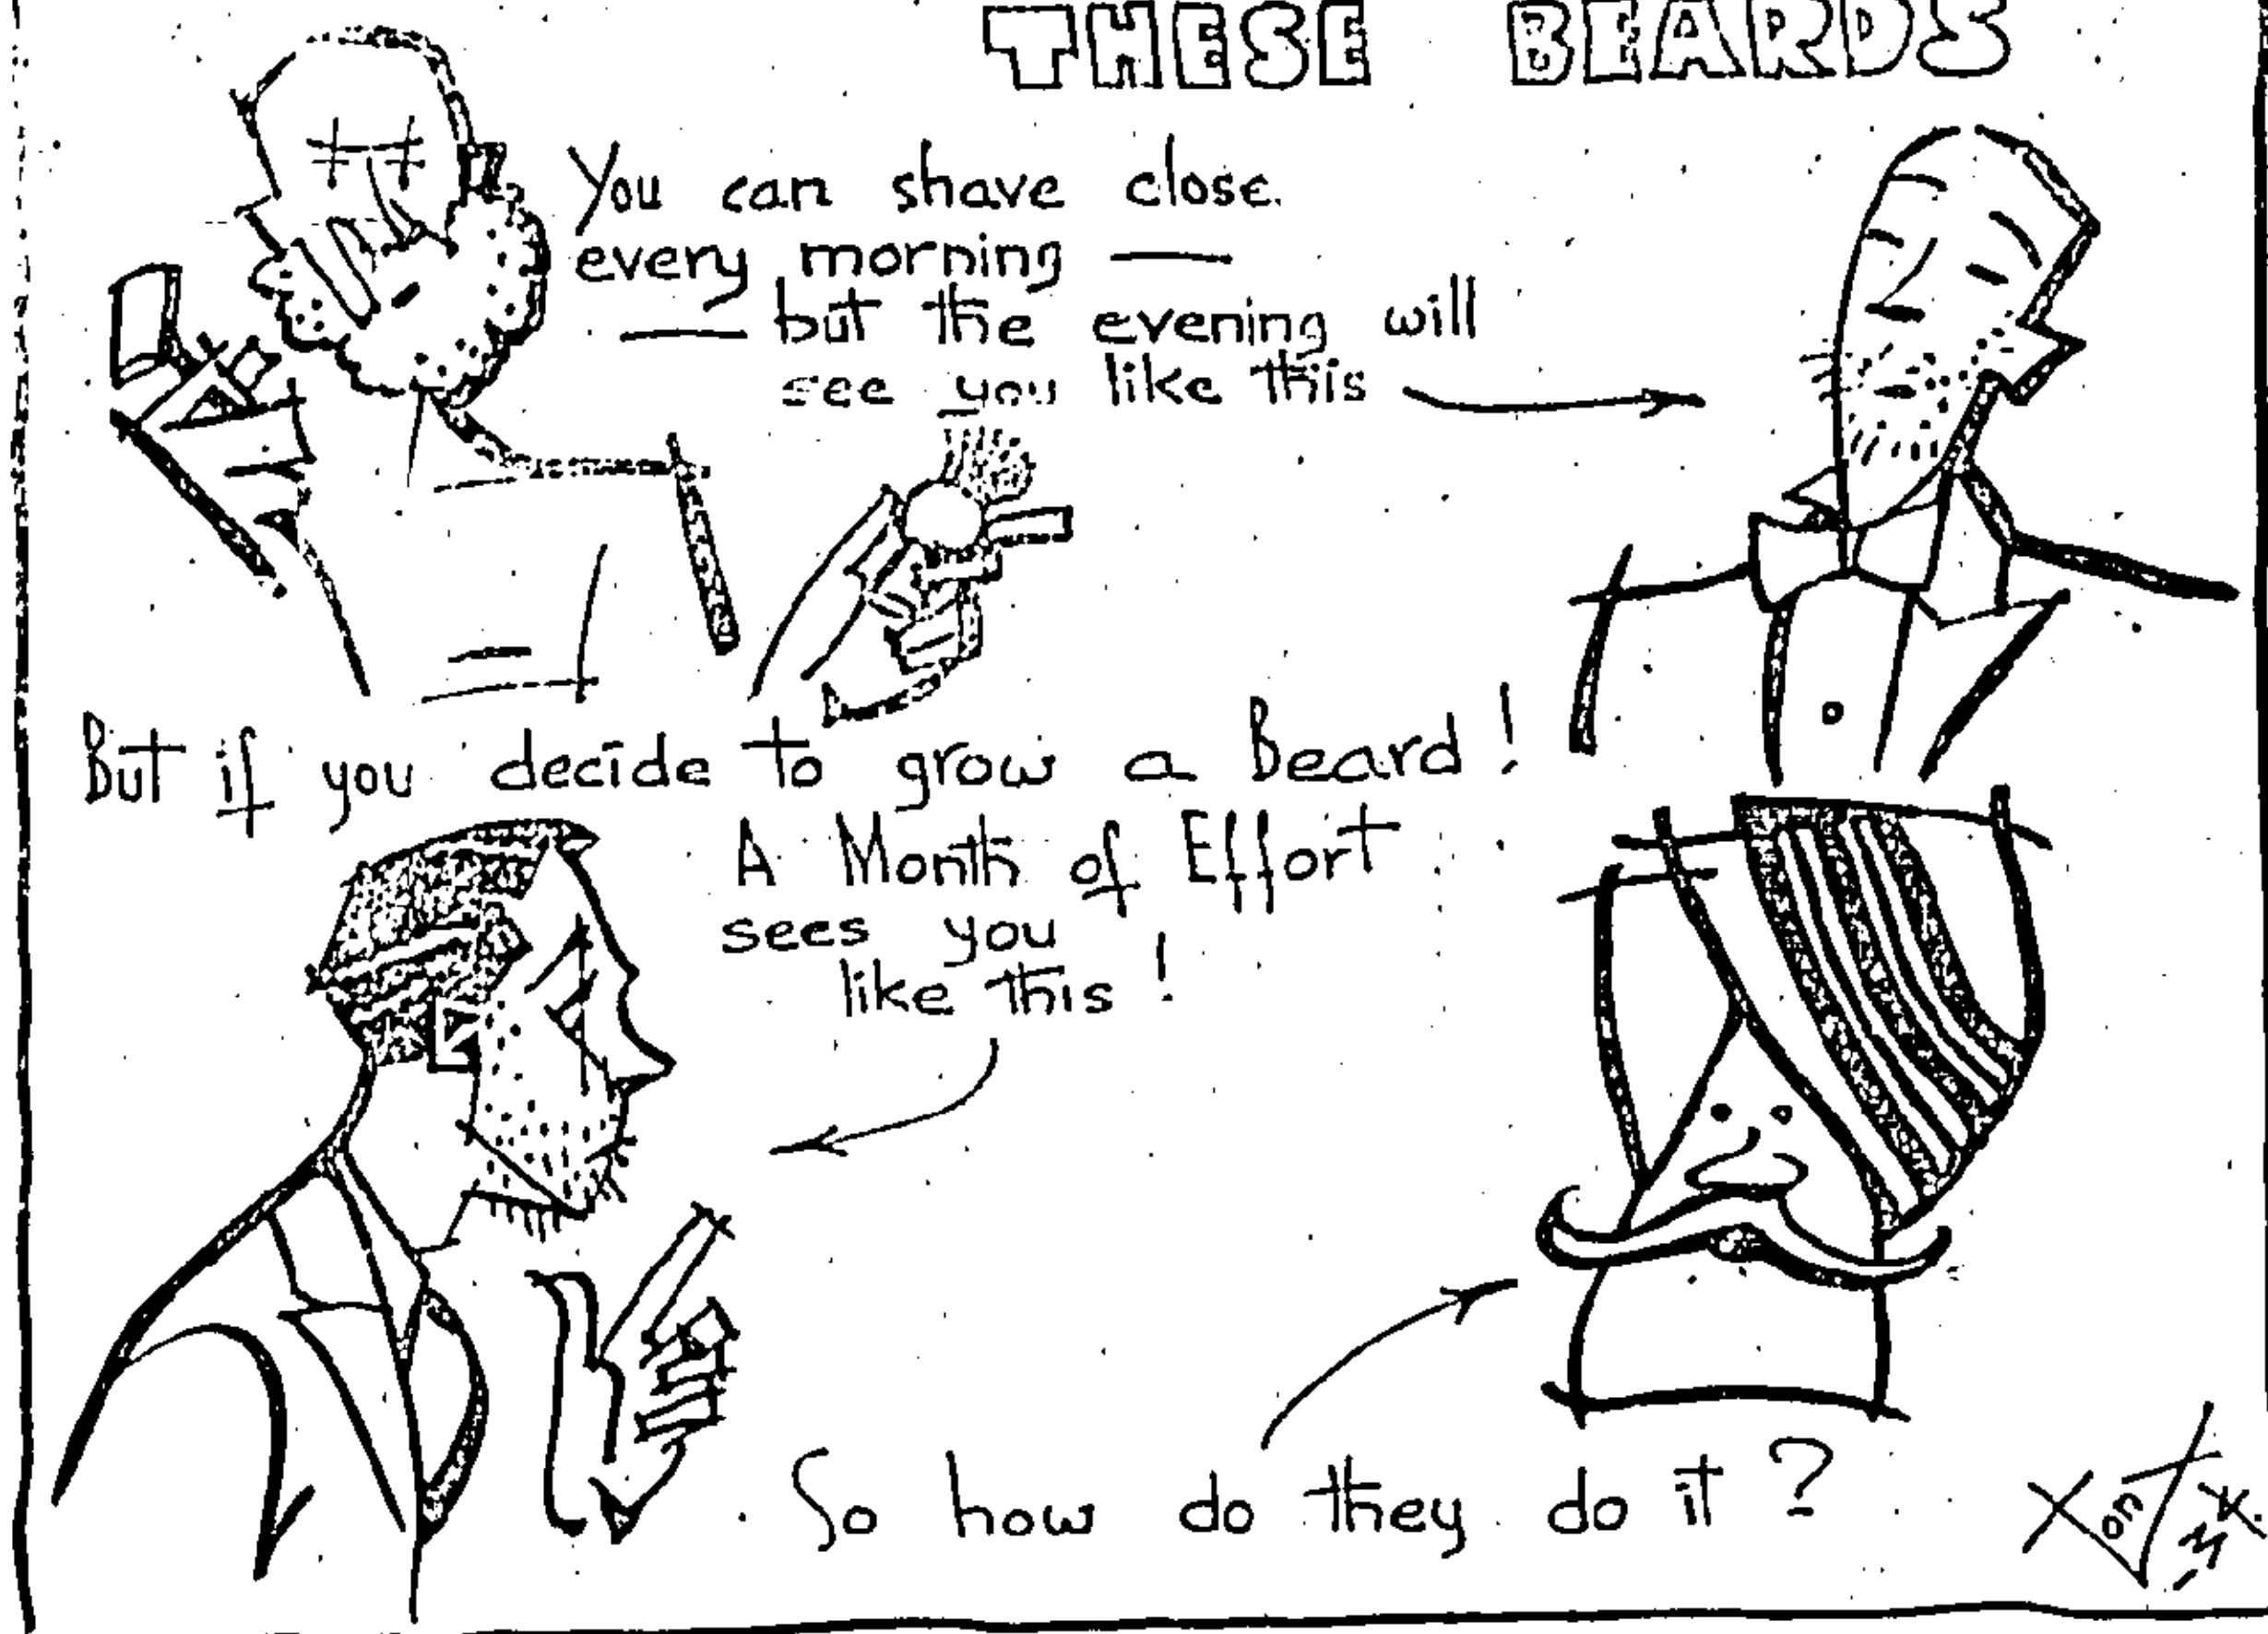 THESE BEARDS
You can shave close
every morning —
— but the evening will
see you like this
But if you decide to grow a Beard!
A Month of Effort
sees you
like this!
So how do they do it?